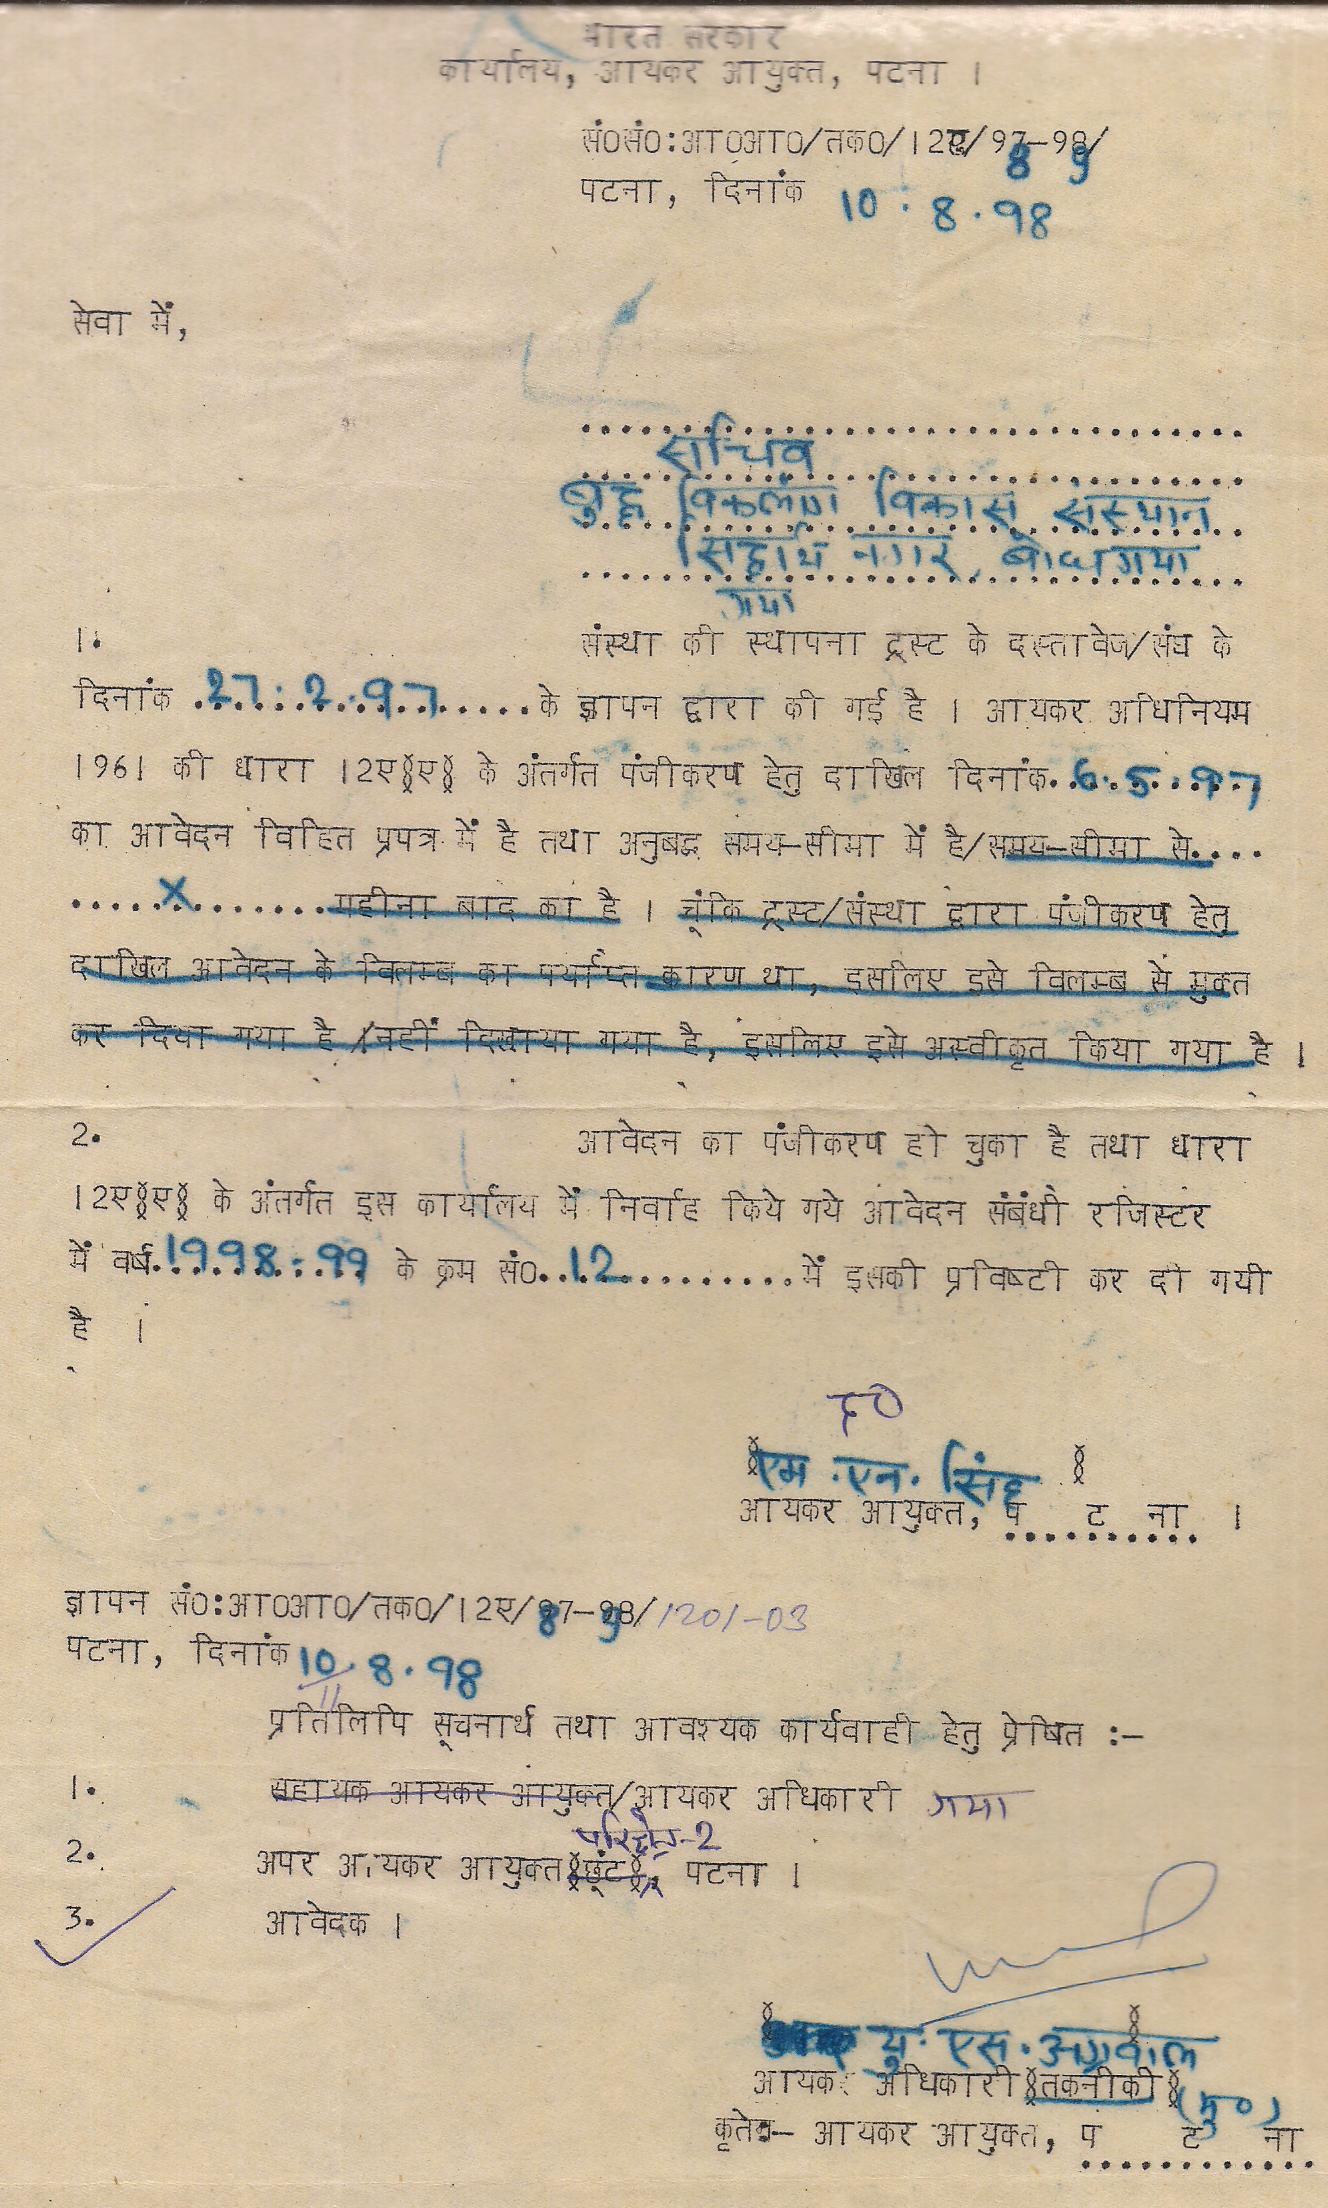 भारत सरकार
कार्यालय, आयकर आयुक्त, पटना ।
सं0सं0:आ0आ0/तक0/12ए/98-99/
पटना, दिनांक 10.8.98
सेवा में,
सचिव
बुद्ध विकलांग विकास संस्थान
सिद्धार्थ नगर, बोधगया
गया
1. संस्था की स्थापना ट्रस्ट के दस्तावेज/संघ के
दिनांक 27.2.97 के ज्ञापन द्वारा की गई है । आयकर अधिनियम
1961 की धारा 12ए(ए) के अंतर्गत पंजीकरण हेतु दाखिल दिनांक 6.5.97
का आवेदन विहित प्रपत्र में है तथा अनुबद्ध समय-सीमा में है/समय-सीमा से....
.....x........महीना बाद का है । चूंकि ट्रस्ट/संस्था द्वारा पंजीकरण हेतु
दाखिल आवेदन के विलम्ब का पर्याप्त कारण था, इसलिए इसे विलम्ब से मुक्त
कर दिया गया है /नहीं दिखाया गया है, इसलिए इसे अस्वीकृत किया गया है ।
2. आवेदन का पंजीकरण हो चुका है तथा धारा
12ए(ए) के अंतर्गत इस कार्यालय में निर्वाह किये गये आवेदन संबंधी रजिस्टर
में वर्ष 1998-99 के क्रम सं0 12 में इसकी प्रविष्टी कर दी गयी
है ।
ह0
(एम.एन. सिंह)
आयकर आयुक्त, प ट ना ।
ज्ञापन सं0:आ0आ0/तक0/12ए/98-99/1201-03
पटना, दिनांक 10.8.98
11
प्रतिलिपि सूचनार्थ तथा आवश्यक कार्यवाही हेतु प्रेषित :-
1. सहायक आयकर आयुक्त/आयकर अधिकारी गया
परिक्षेत्र-2
2. अपर आयकर आयुक्त (छूंट), पटना ।
3. आवेदक ।
यु. एस. अग्रवाल
आयकर अधिकारी (तकनीकी)
(मु0)
कृते- आयकर आयुक्त, प ट ना